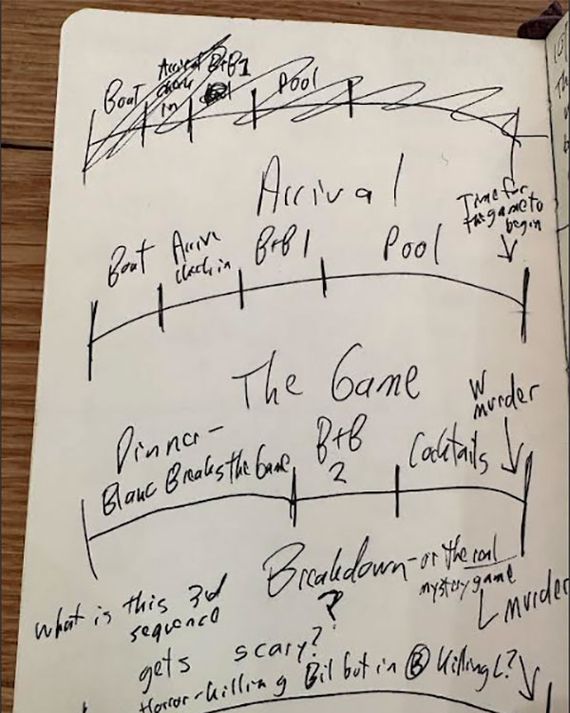 Boat Arrival check in B+B1 Pool
Arrival
Time for
the game to
begin
Boat Arrive check in B+B 1 Pool
The Game
W
murder
Dinner-
Blanc Breaks the Game
B+B
2
Cocktails
Breakdown - or the real
mystery game
?
L murder
what is this 3d
sequence
gets scary?
Horror-killing Bil but in B killing L?